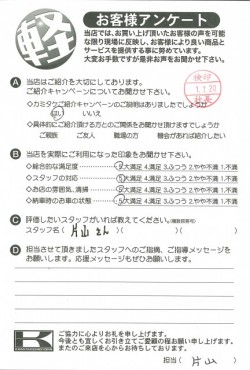 軽
お客様アンケート
当店では、お買い上げ頂いたお客様の声を可能
な限り現場に反映し、お客様により良い商品と
サービスを提供する事に努めています。
大変お手数ですが是非お声をお聞かせ下さい。
A 当店はご紹介を大切にしております。
ご紹介キャンペーンについてお聞かせ下さい。
◇カミタケご紹介キャンペーンのご説明はありましたでしょうか
はい いいえ
◇具体的にご紹介頂ける方とのご関係をお聞かせ頂けますでしょうか
ご親戚 ご友人 職場の方 機会があれば紹介したい
B 当店を実際にご利用になった印象をお聞かせ下さい。
◇総合的な満足度 5大満足 4.満足 3.ふつう 2.やや不満 1.不満
◇スタッフの対応 5大満足 4.満足 3.ふつう 2.やや不満 1.不満
◇お店の雰囲気、清掃 5大満足 4.満足 3.ふつう 2.やや不満 1.不満
◇納車時のお車の状態 5大満足 4.満足 3.ふつう 2.やや不満 1.不満
C 評価したいスタッフがいれば教えてください。(複数回答可)
スタッフ名( 片山さん )
D 担当させて頂きましたスタッフへのご指摘、ご指導メッセージを
お願いします。応援メッセージもぜひお願いします。
K
ご協力に心よりお礼を申し上げます。
今後とも宜しくお引き立てご愛顧の程お願い申し上げます。
またのご来店を心からお待ちしております。
担当( 片山 )